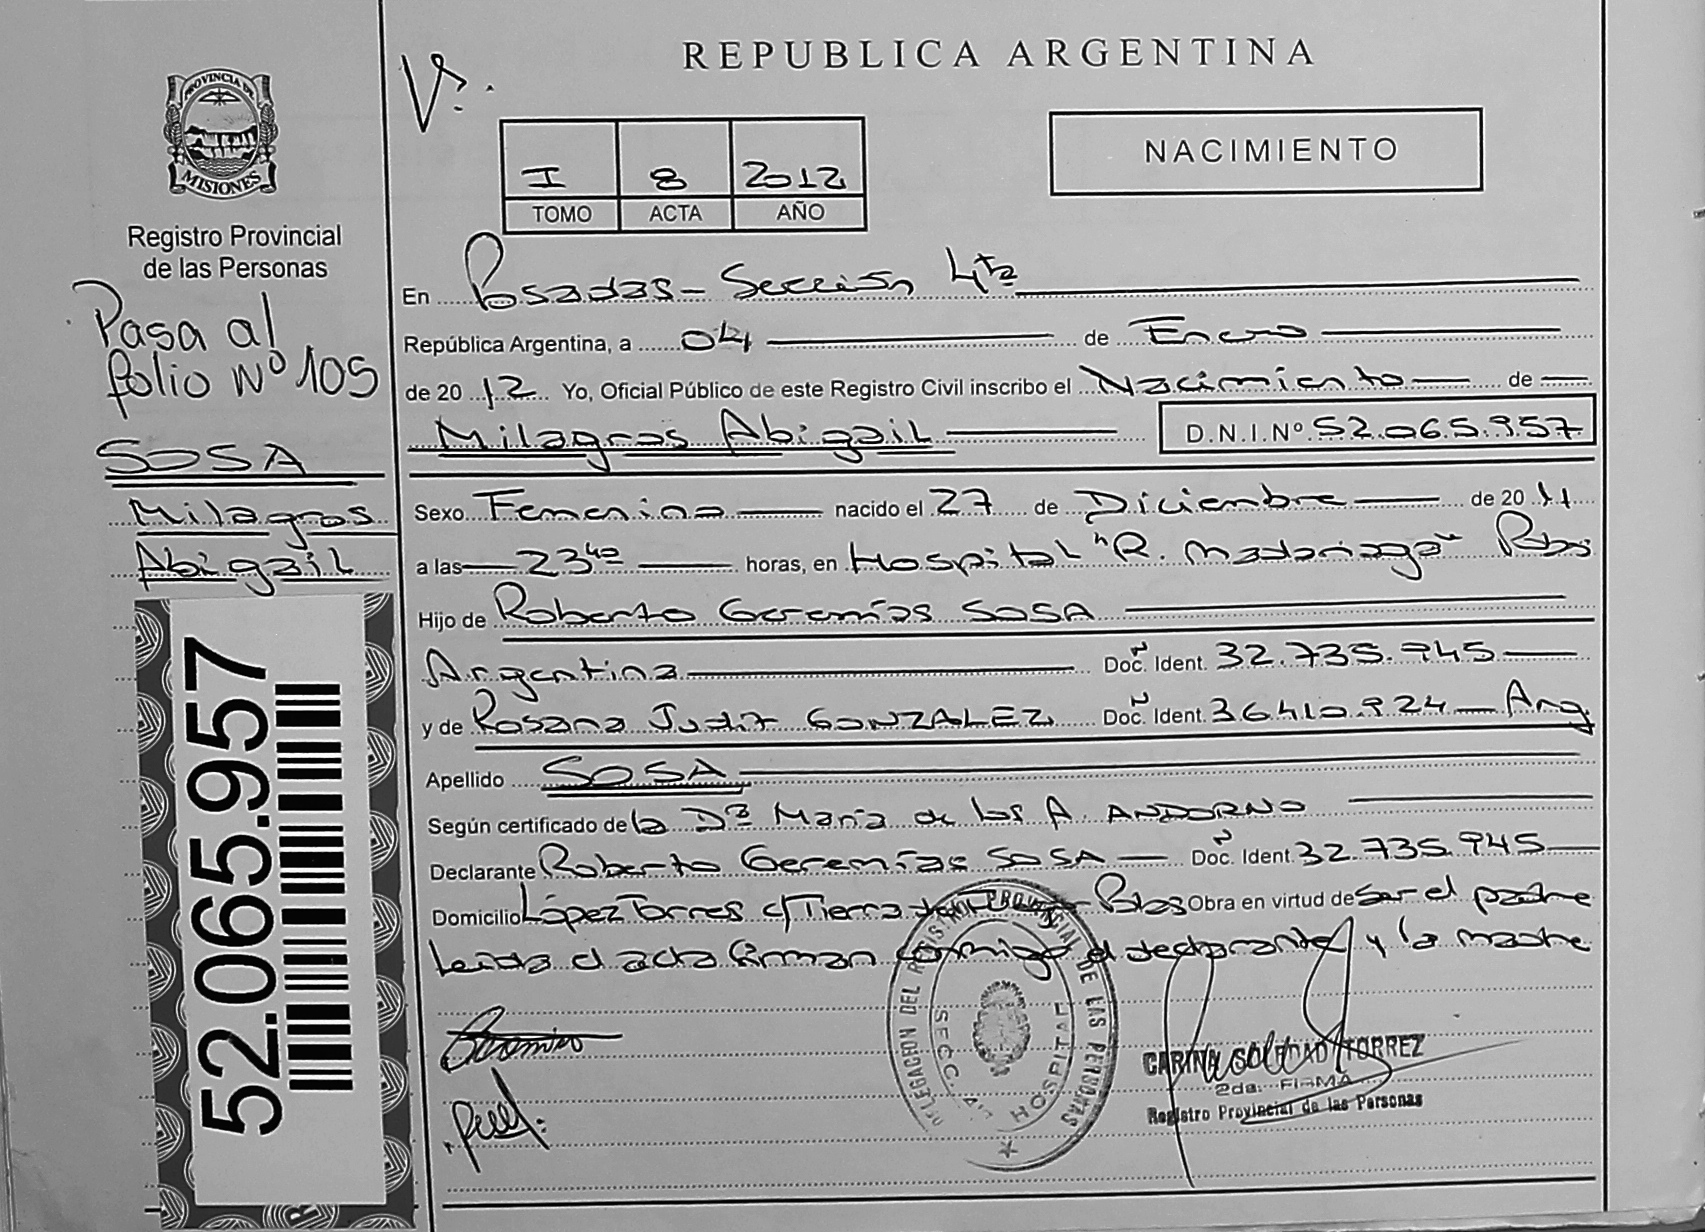 REPUBLICA ARGENTINA
PROVINCIA DE
MISIONES
Registro Provincial
de las Personas
Pasa al
folio Nº 105
SOSA
Milagros
Abigail
52.065.957
Vº.
I 8 2012
TOMO ACTA AÑO
NACIMIENTO
En Posadas - Sección 4ta
República Argentina, a 04 de Enero
de 2012 Yo, Oficial Público de este Registro Civil inscribo el Nacimiento de
Milagros Abigail D.N.I.Nº 52.065.957
Sexo Femenino nacido el 27 de Diciembre de 2011
a las 23 40 horas, en Hospital "R. Madariaga" Pbs
Hijo de Roberto Geremías SOSA
Argentina Doc. Ident. 32.735.945
y de Rosana Judit GONZALEZ Doc. Ident. 36.410.924 - Arg
Apellido SOSA
Según certificado de la Dra María de los A. ANDORNO
Declarante Roberto Geremías SOSA Doc. Ident. 32.735.945
Domicilio López Torres c/ Tierra del Pbs Obra en virtud de ser el padre
Leida el acta firman conmigo el declarante y la madre
DELEGACION DEL REGISTRO PROVINCIAL DE LAS PERSONAS
SECC. 4ta HOSPITAL
CARINA SOLEDAD TORREZ
2da. FIRMA
Registro Provincial de las Personas